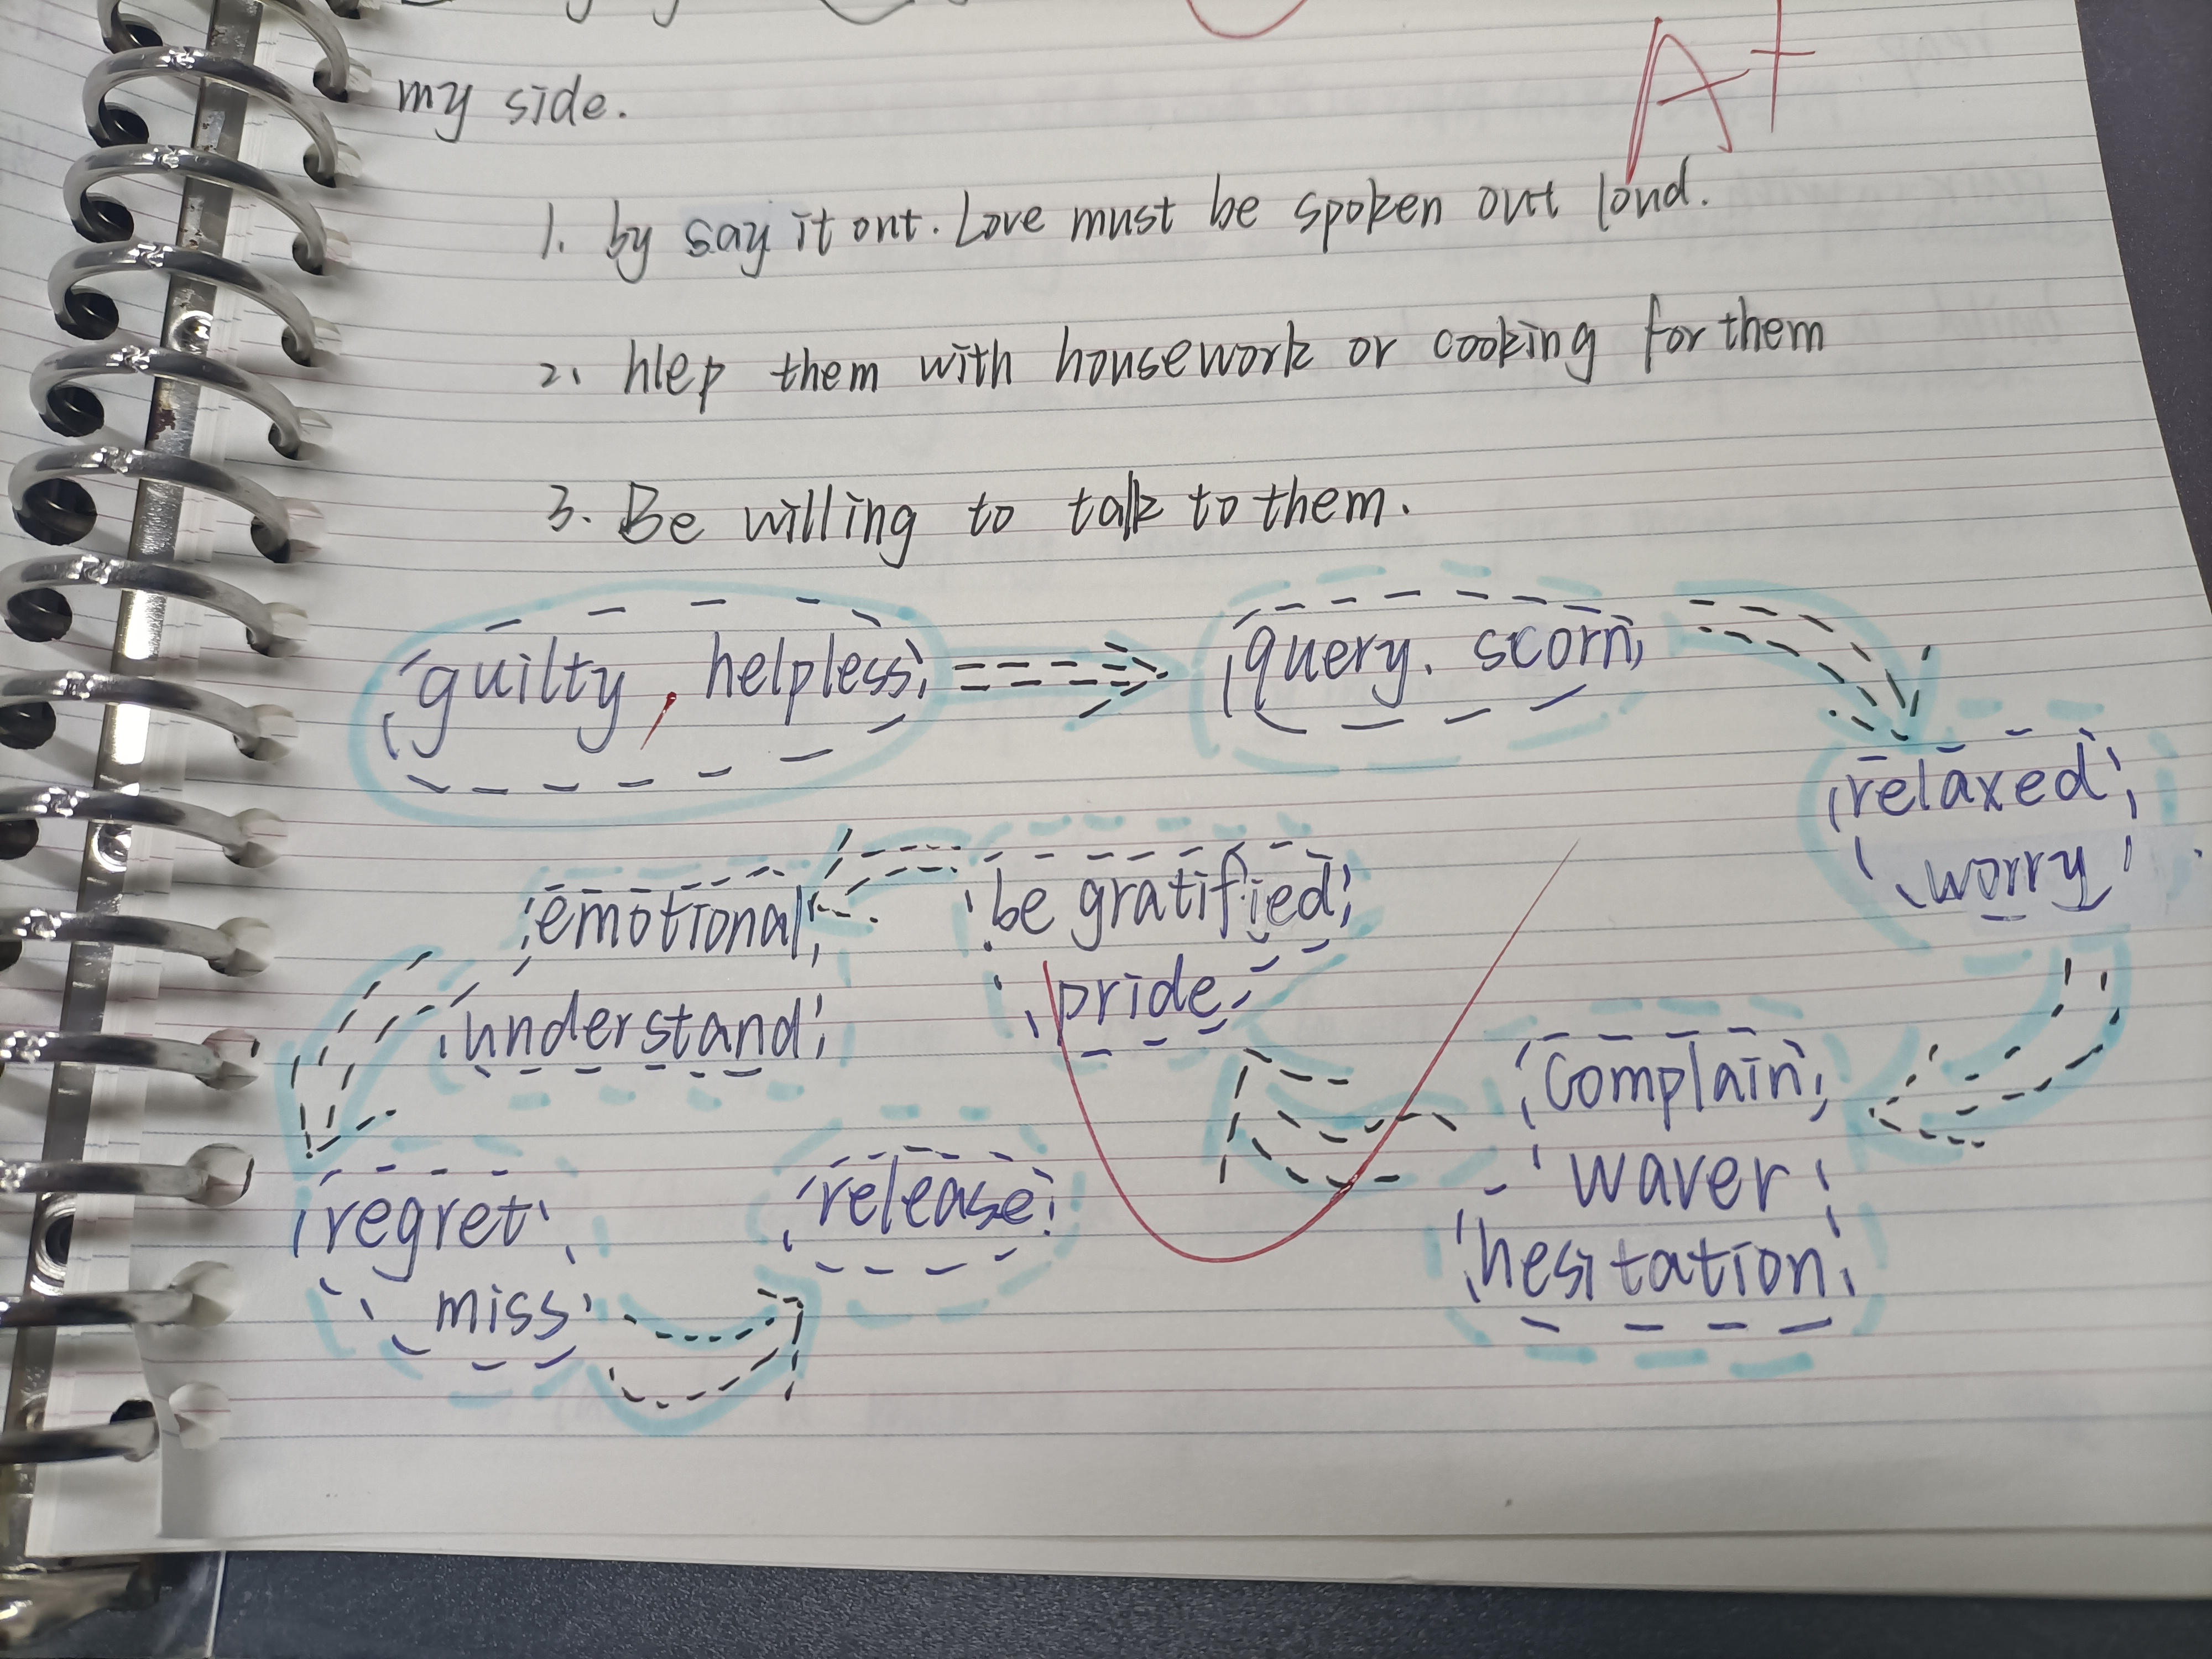 my side.
A+
1. by say it out. Love must be spoken out loud.
2. hlep them with housework or cooking for them
3. Be willing to talk to them.
guilty, helpless
query. scorn
relaxed
worry
complain
waver
hesitation
be gratified
pride
emotional
understand
regret
miss
release